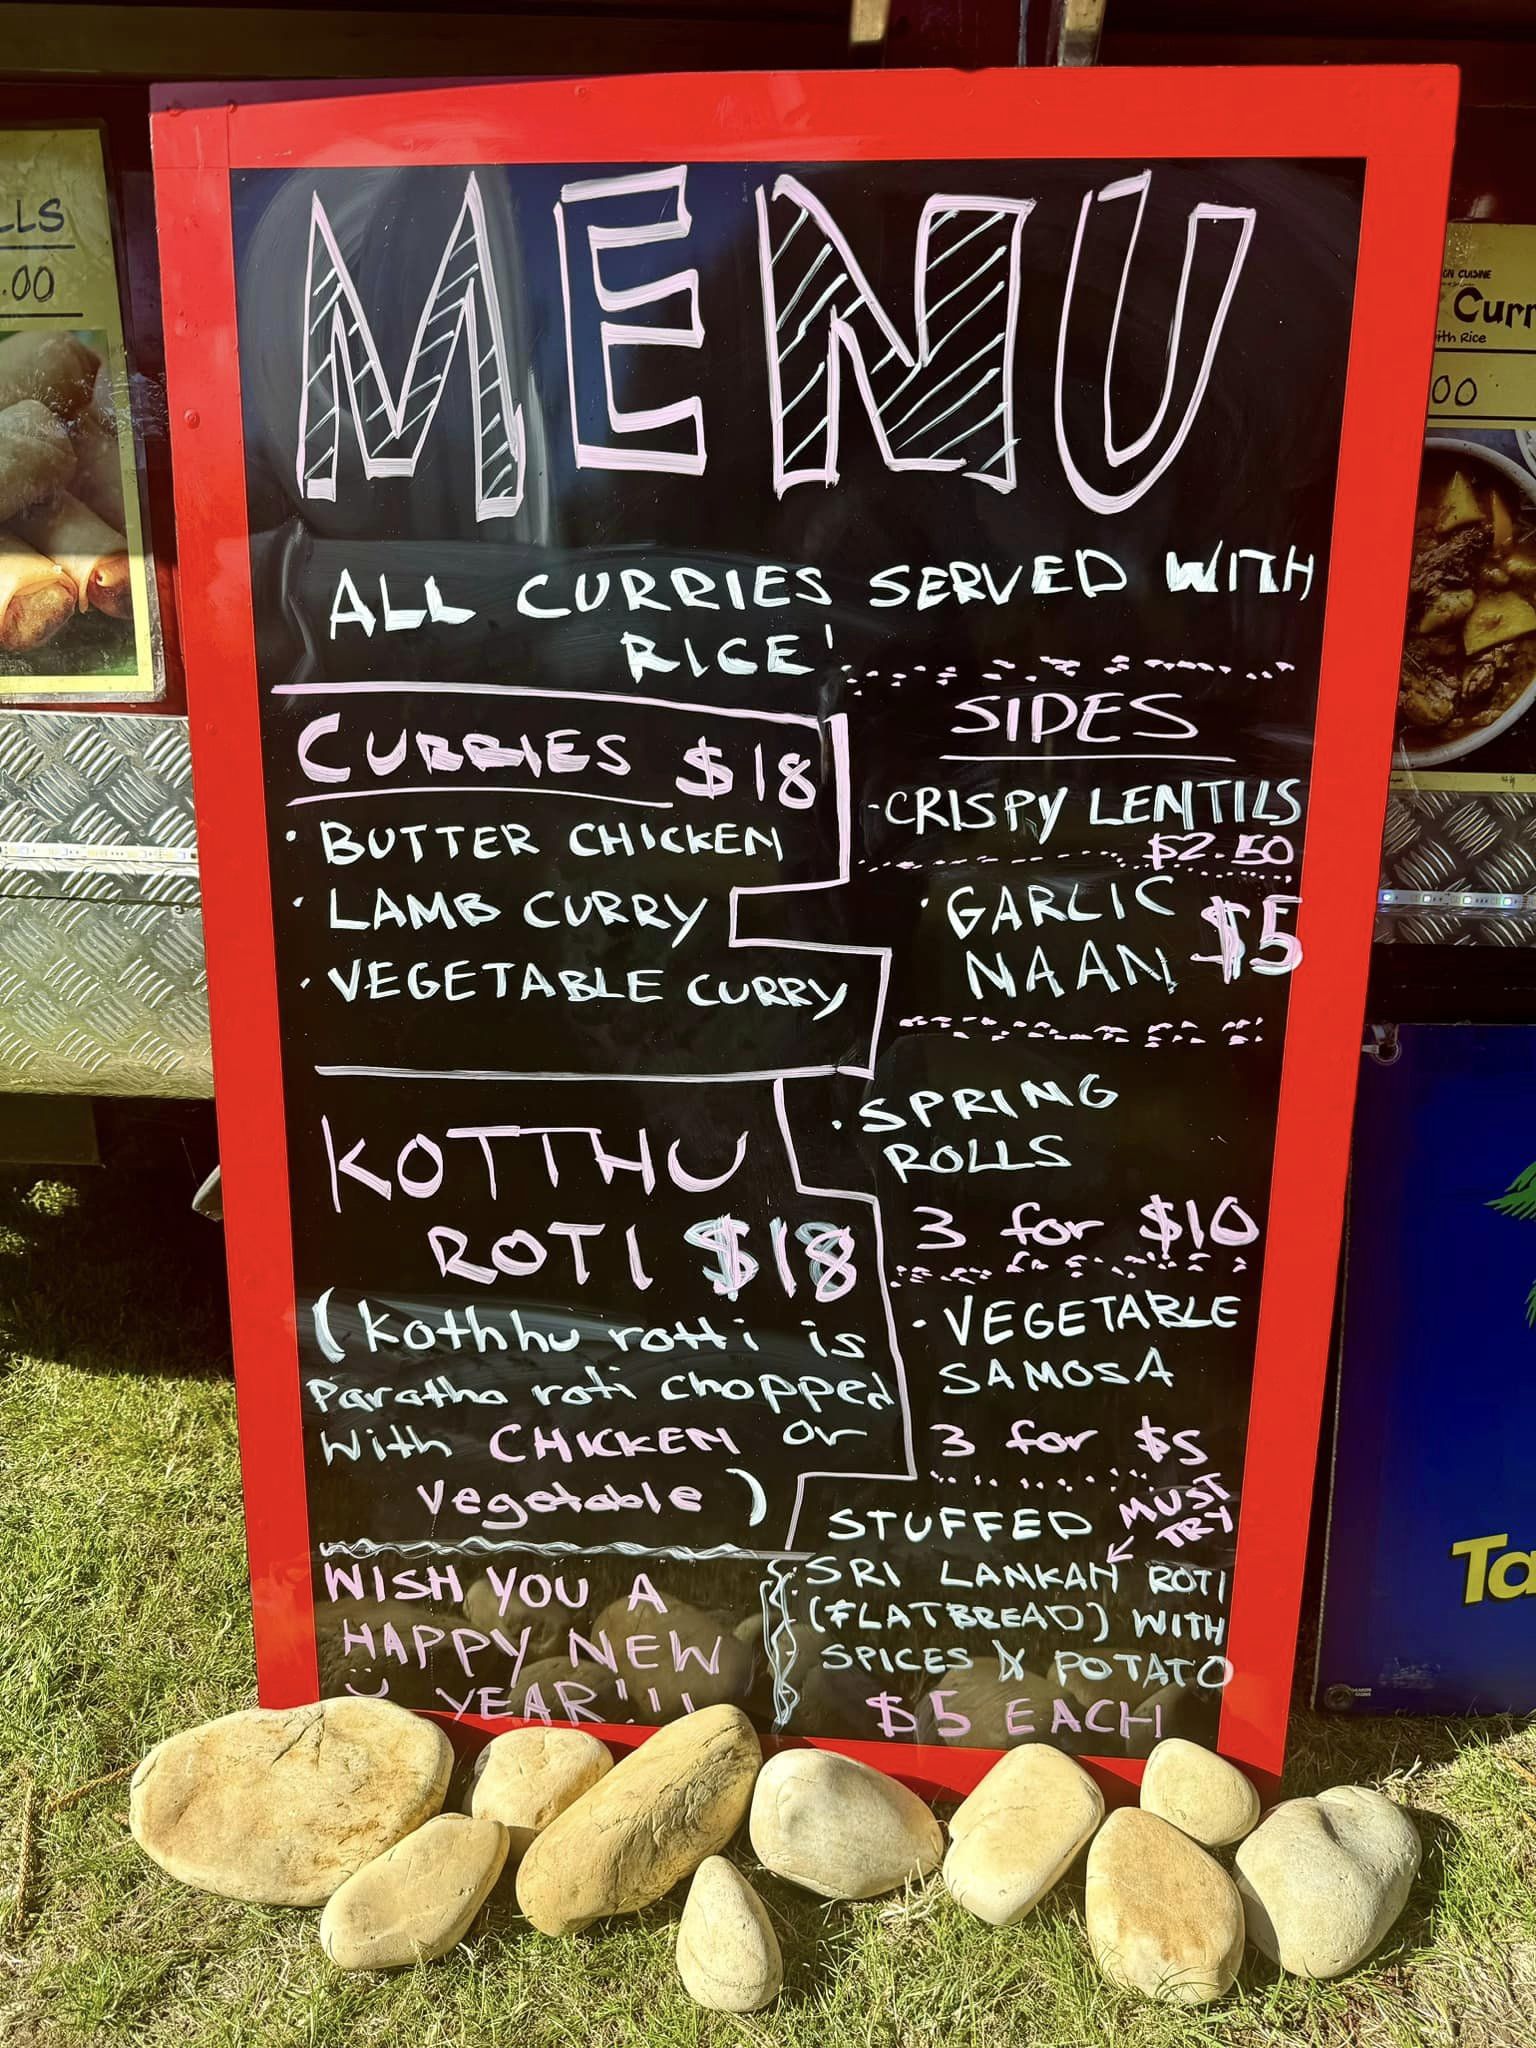 MENU
ALL CURRIES SERVED WITH
RICE!
CURRIES $18
• BUTTER CHICKEN
• LAMB CURRY
• VEGETABLE CURRY
KOTTHU
ROTI $18
(Kothhu rotti is
Paratha roti chopped
With CHICKEN or
vegetable)
WISH YOU A
HAPPY NEW
YEAR!!!
SIDES
-CRISPY LENTILS
$2.50
• GARLIC
NAAN $5
• SPRING
ROLLS
3 for $10
• VEGETABLE
SAMOSA
3 for $5
MUST
TRY
STUFFED
SRI LANKAN ROTI
(FLATBREAD) WITH
SPICES & POTATO
$5 EACH
LLS
.00
CUISINE
Curr
ith Rice
00
Ta